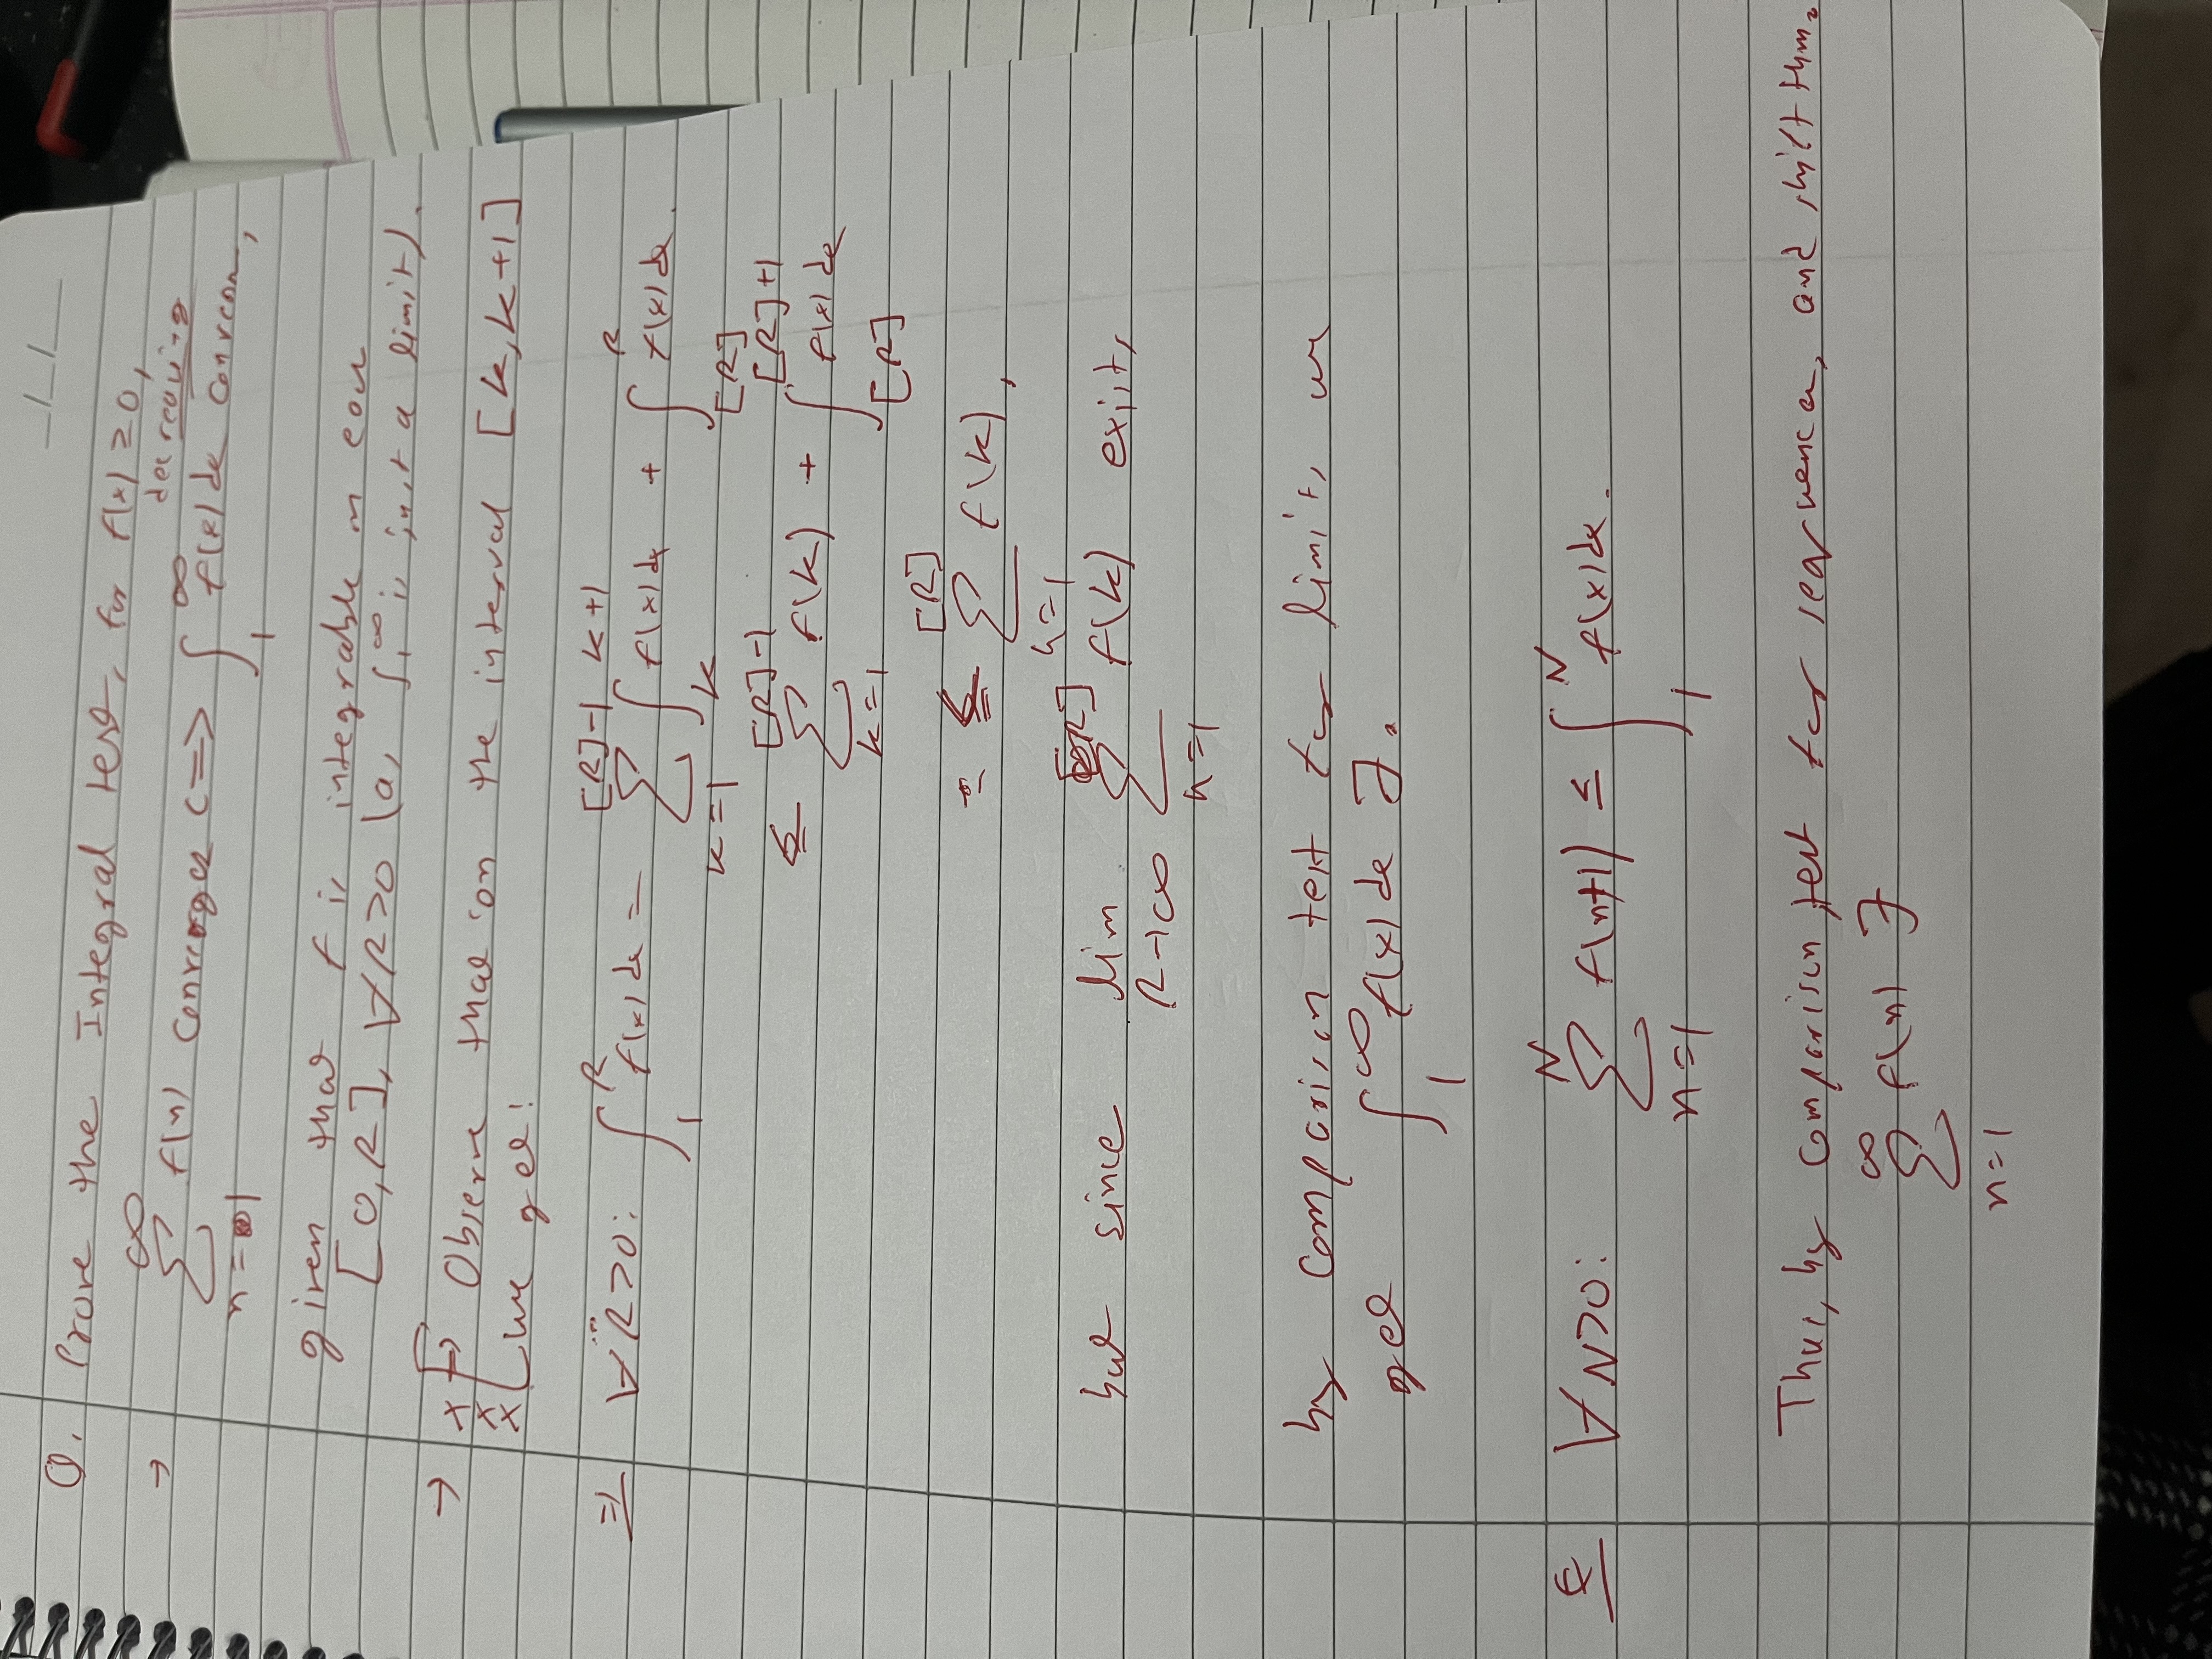 _/_/_
Q. Prove the Integral test, for f(x) ≥ 0,
decreasing
→ ∑_{n=1}^{∞} f(n) converges <=> ∫_1^∞ f(x)dx conver,
given that f is integrable on each
[0,R], ∀R>0 (as ∫_1^∞ is just a limit).
→ x x x [→ Observe that on the interval [k,k+1]
we get:
=> ∀R>0: ∫_1^R f(x)dx = ∑_{k=1}^{[R]-1} ∫_k^{k+1} f(x)dx + ∫_{[R]}^R f(x)dx.
≤ ∑_{k=1}^{[R]-1} f(k) + ∫_{[R]}^{[R]+1} f(x)dx
≤ ∑_{k=1}^{[R]} f(k),
but since lim_{R→∞} ∑_{k=1}^{[R]} f(k) exists
by comparison test for limits we
get ∫_1^∞ f(x)dx ∃.
<= ∀N>0: ∑_{n=1}^N f(n+1) ≤ ∫_1^N f(x)dx.
Thus, by comparison test for sequences, and shift thm.
∑_{n=1}^∞ f(n) ∃